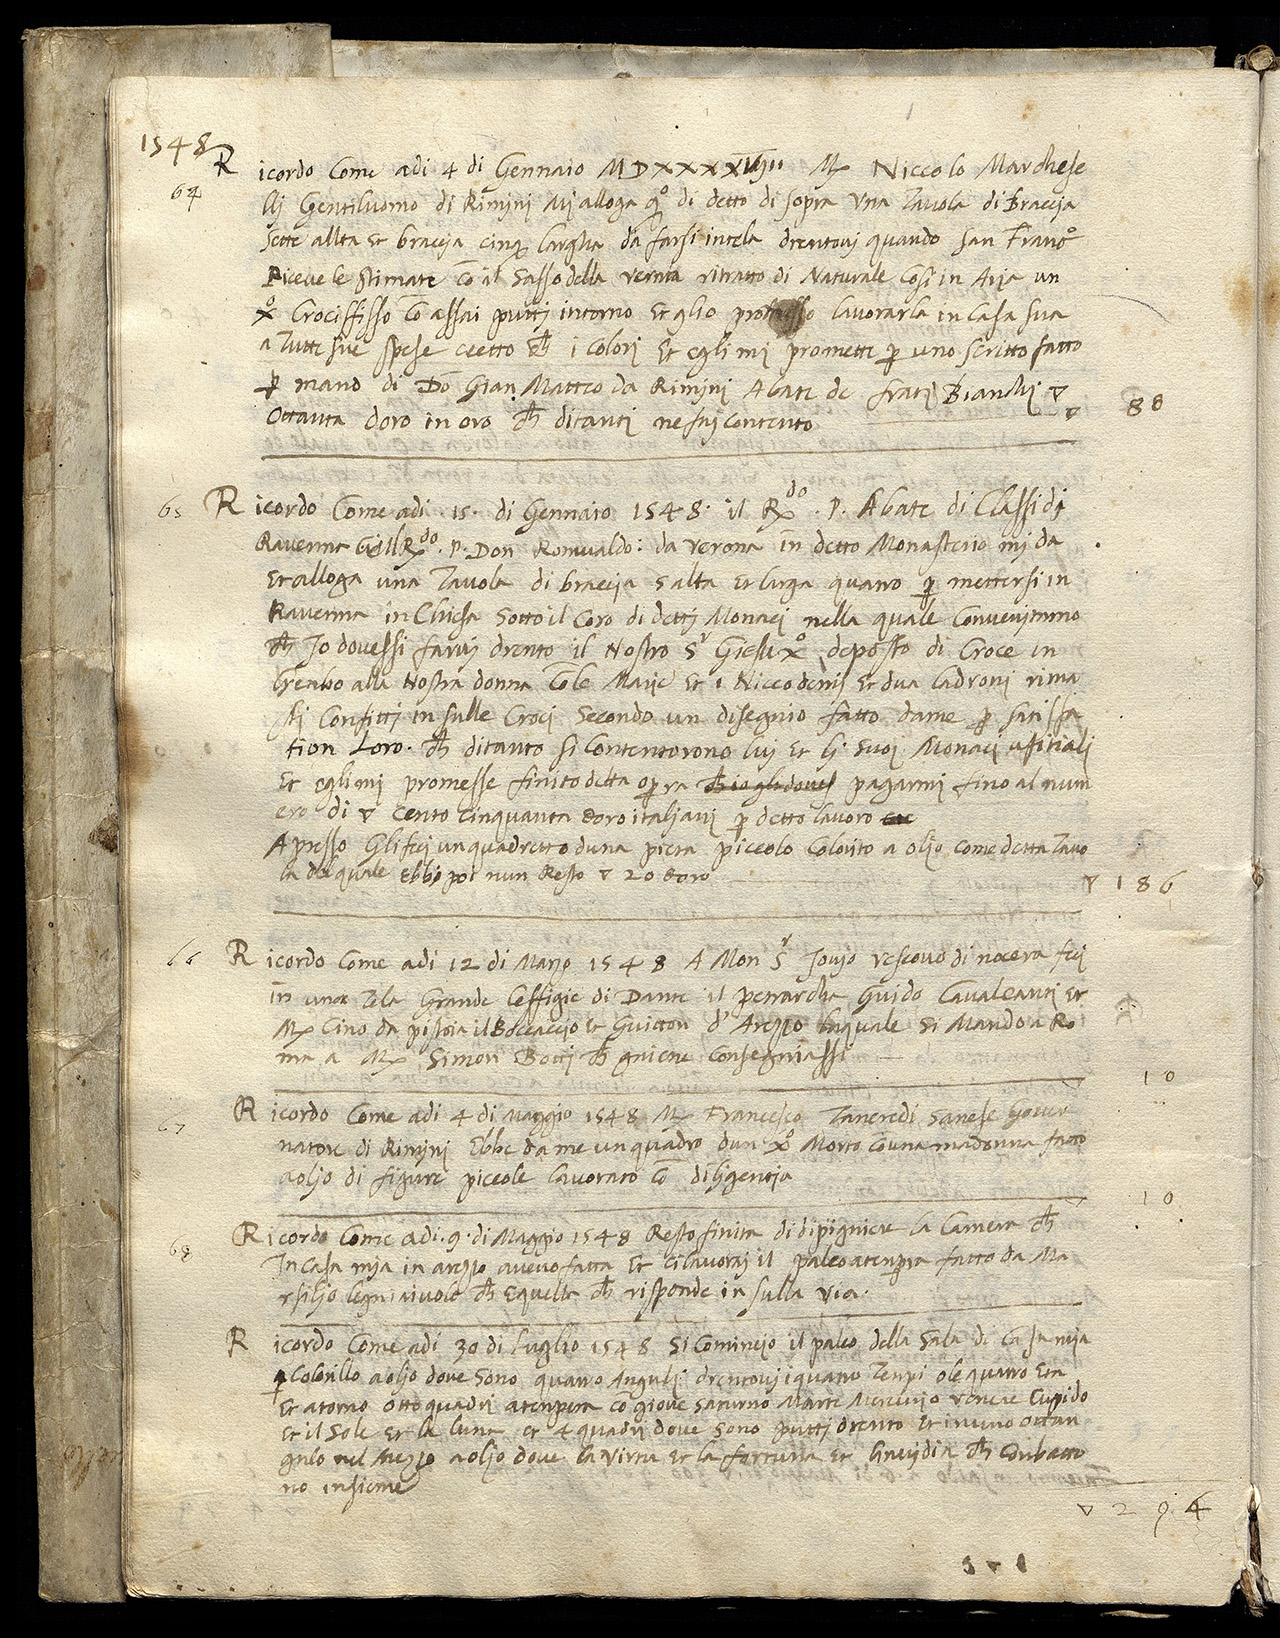 1548
64 Ricordo Come adi 4 di Gennaio MDXXXX M Niccolo Marchese
llj Gentiluomo di Riminj Mj alloga di detto di sopra Una Tavola di Braccja
sette allta et braccja cinq largha da farsi intela drentovj quando San Franc.o
Riceve le stimate cō il Sasso della vernia ritratto di Naturale Cosi in Arja un
X.o Crociffisso cō assai puttj intorno et glio lavorarla in Casa sua
a Tutte sue spese ecetto ch i Colorj Et egli mj promette p uno scritto fatto
p mano di Dō Gian Matteo da Riminj Abate de fratj Bianchj ▽
Ottanta doro in oro ch ditantj ne fuj contento ▽ 80
65 Ricordo Come adi .15. di Gennaio 1548. il R.do .P. Abate di Classi dj
Ravenna R.do .P. Don Romualdo: da verona in detto Monasterio mj da
Et alloga una Tavola di braccja 5 alta et larga quatro p mettersi in
Ravenna in Chiesa sotto il Coro di dettj Monacj nella quale Convenimmo
ch Jo dovessi farvj drento il Nostro S.r Giesu X.o deposto di Croce in
grenbo alla Nostra donna cōle Marje Et i Niccodemj Et dua ladronj rima
stj Confittj in sulle Crocj Secondo un disegnio fatto dame p satisfa
tion Loro. ch ditanto si Contentorono luj et lj suoj Monacj ufitialj
Et eglimj promesse finito detta opra ch io gli dovessi pagarmj fino al num
ero di ▽ cento cinquanta doro italjanj p detto lavoro
Apresso Gli fecj un quadretto duna pieta piccolo Colorito a oljo come detta Tavo
la del quale Ebbj poi nun Resto ▽ 20 doro ▽ 186
66 Ricordo Come adi 12 di Marzo 1548 A Mon S.r Jovjo vescovo di nocera fecj
in una Tela Grande leffigie di Dante il petrarcha Guido Cavalcantj Et
M Cino da pistoia il Boccaccjo Et Guitton d'Arezzo laquale si Mando a Ro
ma a M Simon Bottj ch gniene Consegniassi
10
67 Ricordo Come adi 4 di Maggio 1548 M Francesco Tancredi Sanese Gover
natore di Riminj Ebbe da me un quadro dun X.o Morto Couna madonna fatto
a oljo di figure piccole lavorato cō diligentja
10
68 Ricordo Come adi .9. di Maggio 1548 Resto finita di dipigniere la Camera ch
In Casa mja in arezzo avevo fatta Et ci lavoraj il palco atenpera fatto da Ma
rsiljo legniaivolo ch e quella ch risponde in sulla via.
Ricordo Come adi 30 di Luglio 1548 Si Comincjo il palco della Sala di Casa mja
p Colorillo a oljo dove sono quatro Angulj drentovj i quatro Tenpi o le quatro Eta
Et atorno otto quadrj atenpera cō giove Saturno Marte Mercurjo venere Cupido
et il Sole Et la luna et 4 quadrj dove sono puttj drento et in uno ottan
gulo nel Mezzo a oljo dove la Virtu Et la fortuna Et linvidia ch Conbatto
no insieme
▽ 294